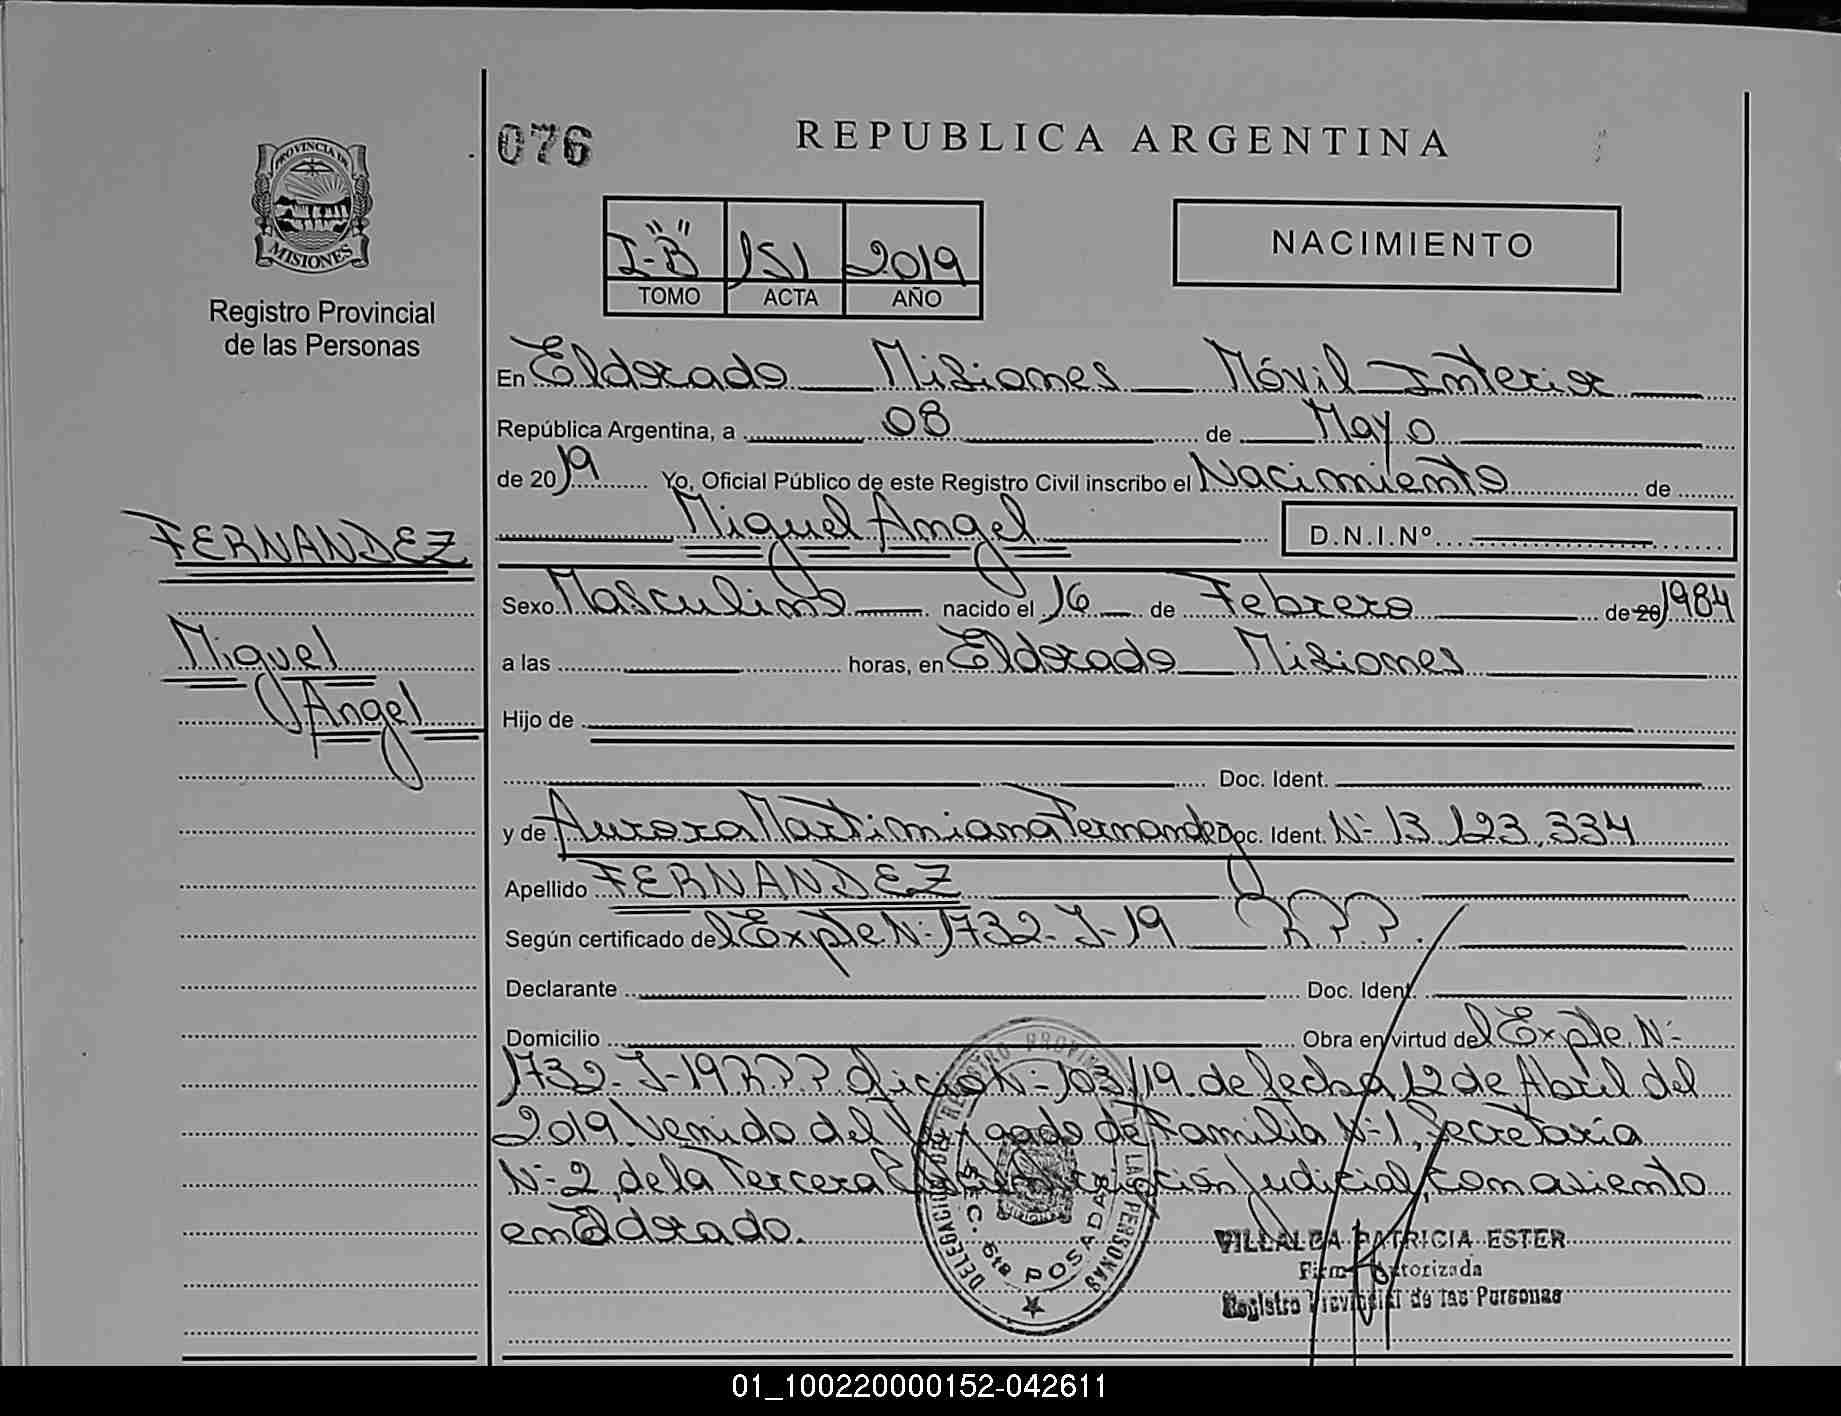 076
REPUBLICA ARGENTINA
PROVINCIA DE
MISIONES
Registro Provincial
de las Personas
I-"B" 151 2019
TOMO ACTA AÑO
NACIMIENTO
En Eldorado Misiones Móvil Interior
República Argentina, a 08 de Mayo
de 2019 Yo, Oficial Público de este Registro Civil inscribo el Nacimiento de
Miguel Angel D.N.I.Nº
FERNANDEZ
Sexo Masculino nacido el 16 de Febrero de 20 1984
Miguel
Angel
a las horas, en Eldorado Misiones
Hijo de
Doc. Ident.
y de Aurora Martimiana Fernandez Doc. Ident. Nº 13.123.334
Apellido FERNANDEZ
Según certificado del Expte Nº 1732-J-19 R.P.P.
Declarante Doc. Ident.
Domicilio Obra en virtud del Expte. Nº
1732-J-19 R.P.P. Oficio Nº 103/19 de fecha 12 de Abril del
2019. Venido del Juzgado de Familia Nº 1, Secretaría
Nº 2, de la Tercera Circunscripción Judicial, con asiento
en Eldorado.
DELEGACION DEL REGISTRO PROVINCIAL DE LAS PERSONAS
SEC. 6ta POSADAS
VILLALBA PATRICIA ESTER
Firma Autorizada
Registro Provincial de las Personas
01_100220000152-042611